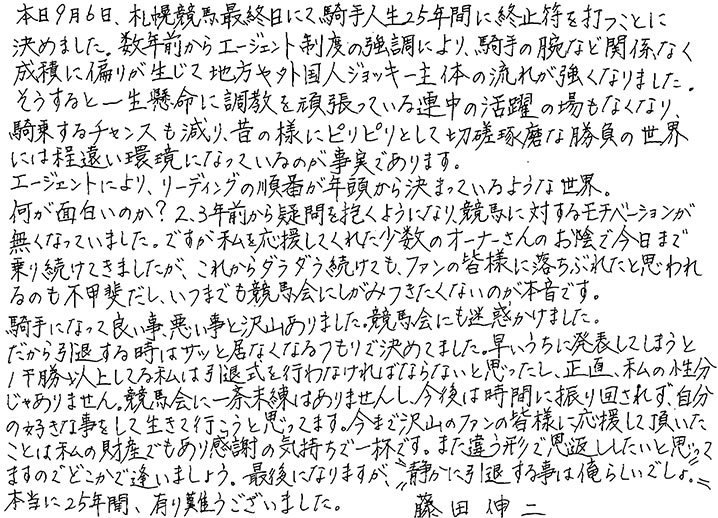 本日9月6日、札幌競馬最終日にて騎手人生25年間に終止符を打つことに
決めました。数年前からエージェント制度の強調により、騎手の腕など関係なく
成積に偏りが生じて地方や外国人ジョッキー主体の流れが強くなりました。
そうすると一生懸命に調教を頑張っている連中の活躍の場もなくなり、
騎乗するチャンスも減り、昔の様にピリピリとして切磋琢磨な勝負の世界
には程遠い環境になっているのが事実であります。
エージェントにより、リーディングの順番が年頭から決まっているような世界。
何が面白いのか?2、3年前から疑問を抱くようになり、競馬に対するモチベーションが
無くなっていました。ですが私を応援してくれた少数のオーナーさんのお陰で今日まで
乗り続けてきましたが、これからダラダラ続けても、ファンの皆様に落ちぶれたと思われ
るのも不甲斐だし、いつまでも競馬会にしがみつきたくないのが本音です。
騎手になって良い事、悪い事と沢山ありました。競馬会にも迷惑かけました。
だから引退する時はサッと居なくなるつもりで決めてました。早いうちに発表してしまうと
1千勝以上してる私は引退式を行わなければならないと思ったし、正直、私の性分
じゃありません。競馬会に一条未練はありませんし、今後は時間に振り回されず、自分
の好きな事をして生きて行こうと思ってます。今まで沢山のファンの皆様に応援して頂いた
ことは私の財産でもあり感謝の気持ちで一杯です。また違う形で恩返ししたいと思って
ますのでどこかで逢いましょう。最後になりますが、〝静かに引退する事は俺らしいでしょ。〟
本当に25年間、有り難うございました。 藤田伸二